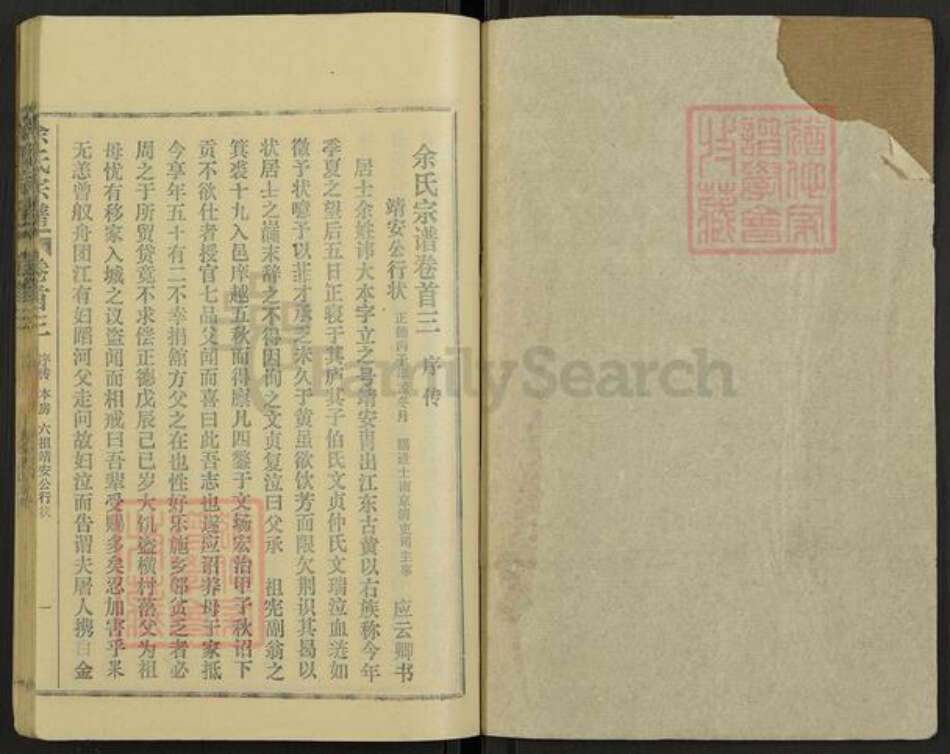 余氏宗谱卷首三 序传
靖安公行状 正德丙子 赐进士南京 司主事 应云卿书
居士余姓讳大本字立之号靖安胄出江东古黄以右族称今年
季夏之望后五日正寝于其庐其子伯氏文贞仲氏文瑞泣血涟如
徵予状噫予以菲才承乏来久于黄虽欲饮芳而限欠荆识其曷以
状居士之巅末辞之不得因询之文贞复泣曰父承 祖宪副翁之
箕裘十九入邑庠越五秋而得廪凡四鏊于文场宏治甲子秋诏下
贡不欲仕者授官七品父闻而喜曰此吾志也遂应诏养母于家抵
今享年五十有二不幸捐館方父之在也性好乐施乡邻贫乏者必
周之于所贸贷竟不求偿正德戊辰己巳岁大饥盗横村落父为祖
母忧有移家入城之议盗闻而相戒曰吾辈受赐多矣忍加害乎果
无恙曾舣舟团江有妇蹈河父走问故妇泣而告谓夫屠人携白金
余氏宗谱 卷首三 序传 本房 六祖靖安公行状 一
谱学会
特藏